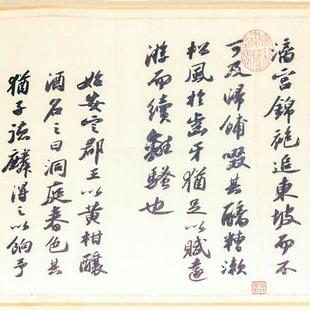 漓宮錦袍追東坡而不
可及歸餔啜其醨糟漱
松風於齒牙猶足以賦遠
游而續離騷也
始安定郡王以黄柑釀
酒名之曰洞庭春色其
猶子德麟得之以餉予